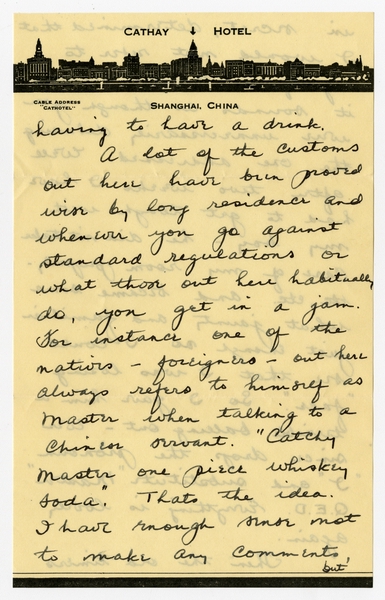 CATHAY HOTEL
CABLE ADDRESS
"CATHOTEL"
SHANGHAI, CHINA
having to have a drink.
A lot of the customs
out here have been proved
wise by long residence and
whenever you go against
standard regulations or
what those out here habitually
do, you get in a jam.
For instance one of the
natives - foreigners - out here
always refers to himself as
Master when talking to a
Chinese servant. "Catchy
Master one piece whiskey
soda". Thats the idea.
I have enough sense not
to make any comments,
but